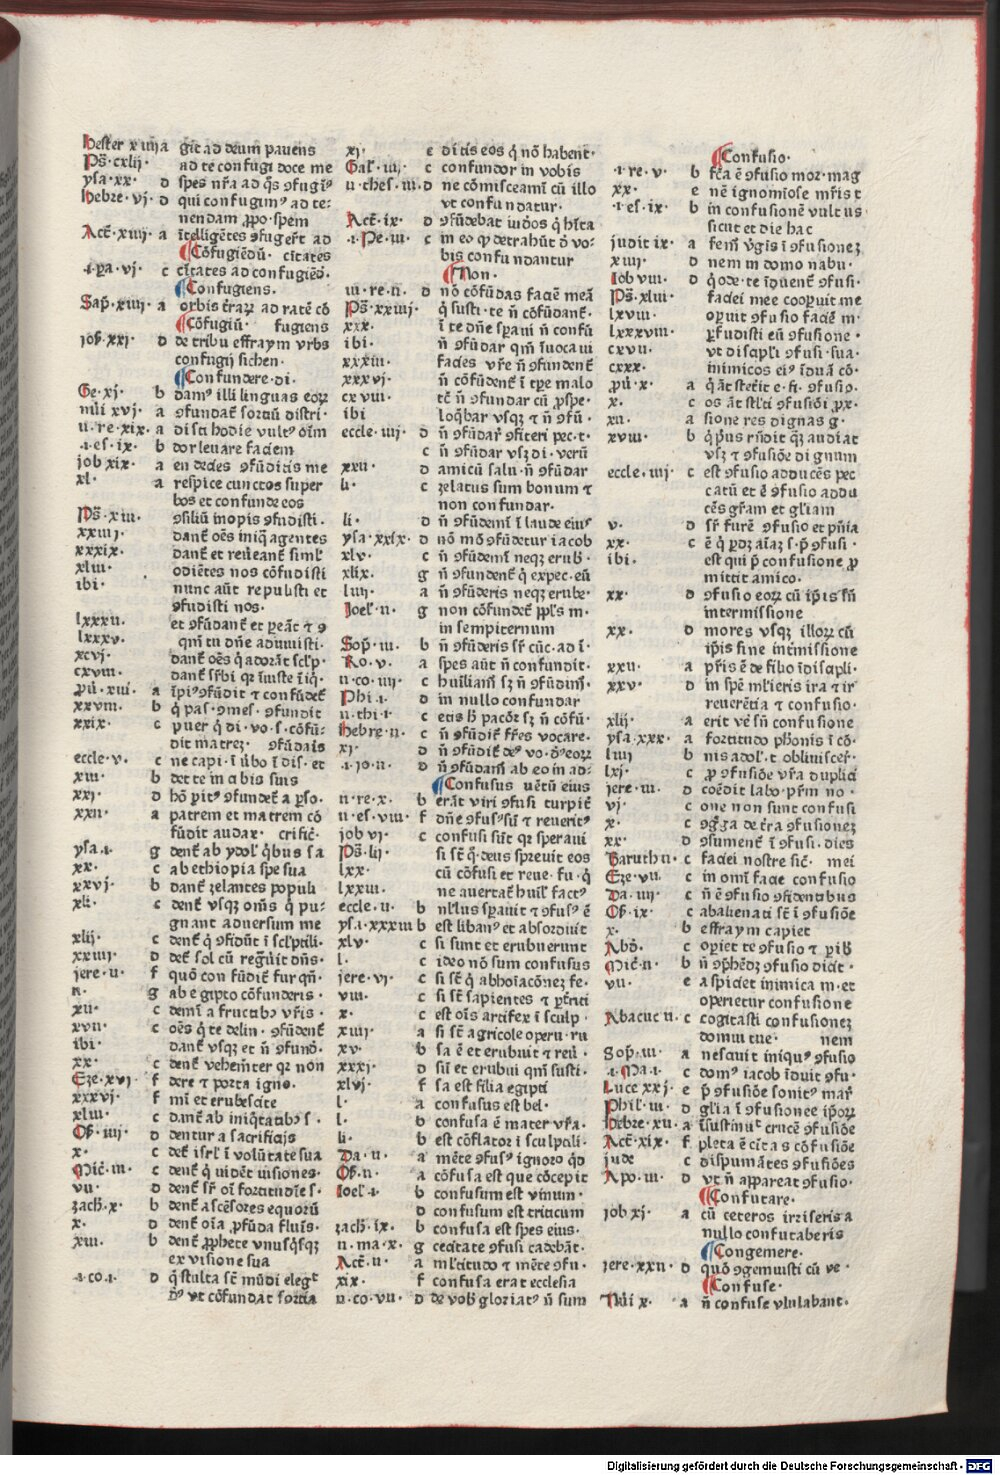 Hester x iiij a g̅it ad deum pauens
Ps̅·cxlij· ad te confugi doce me
ysa·xx· d spes nr̅a ad q̅s ꝯfugi⁹
Hebre·vj· d qui confugim⁹ ad te⸗
nendam ꝓpo·spem
Act̅·xiiij· a i̅tellige̅tes ꝯfuger̅t ad
¶Co̅fugie̅du̅· citates
·i·pa·vj· c ci̅tates ad confugie̅d̅·
¶Confugiens·
Sap̅·xiiij· a orbis t̅raꝝ ad rate̅ co̅
¶Co̅fugiu̅· fugiens
job̅·xxj· d de tribu effraym vrbs
confugij sichen·
¶Confundere·di·
Ge·xj· b dam⁹ illi linguas eoꝝ
nu̅i xvj· a ꝯfundat̅ sortiu̅ distri·
ii·re·xix· a disti hodie vult⁹ oi̅m
·i·es·ix· b dor leuare faciem
job xix· a en dedes ꝯfu̅ditis me
xl· a respice cunctos super
bos et confunde eos
Ps̅·xiii· ꝯsiliu̅ inopis ꝯfudisti·
xxiiij· dant̅ oe̅s iniq̅ agentes
xxxix· dant̅ et reue̅ant̅ siml̅
xliii· odie̅tes nos co̅fudisti
ibi· nunc au̅t repulisti et
ꝯfudisti nos·
lxxxii· et ꝯfu̅dant̅ et pea̅t ⁊ ꝯ
lxxxv· qm̅ tu dn̅e adiuuisti·
xcvj· dant̅ oe̅s q̇ adora̅t scl̅p·
cxviii· dant̅ sr̅bi qꝛ iniuste i̅iq̅·
ꝓu̅·xiii· a i̅pi⁹ ꝯfu̅dit ⁊ confu̅det̅
xxviii· b q̇ pas·ꝯmes·ꝯfundit
xxix· c puer q̇ di·vo·s·co̅fu̅⸗
dit matreꝫ· ꝯfu̅dais
eccle·v· c ne capi·i̅ v̅bo i̅ dis·et
xiii· b det te in cibis suis
xxj· d ho̅ p̅it⁹ ꝯfundet̅ a ꝑso·
xxii· a patrem et matrem co̅
fu̅dit audax· crific̅·
ysa·i· g dent̅ ab ydol̅ q̇bus sa
xx· c ab ethiopia spe sua
xxvj· b dant̅ zelantes populi
xli· c dent̅ vsqꝫ om̅s q̇ pu⸗
gnant aduersum me
xlij· c dent̅ q̇ ꝯfidu̅t i̅ scl̅ptili·
xxiiij· d det̅ sol cu̅ reg̅uit dn̅s·
jere·ii· f quo̅ con fu̅dit̅ fur qn̅·
ii· g ab egipto co̅funderis·
xii· c demi̅ a fructibꝫ vr̅is·
xvii· c oe̅s q̇ te delin·ꝯfu̅dent̅
ibi· dant̅ vsqꝫ et n̅ ꝯfund̅·
xx· c dent̅ vehem̅ter qꝛ non
Eze·xvj· f dere ⁊ porta igno·
xxxvj· f mi̅ et erubescite
xliii· c dant̅ ab iniq̇tatibꝫ s·
Os̅·iiij· d dentur a sacrificijs
x· c det̅ isrl̅ i̅ volu̅tate sua
Mic̅·iii· c dent̅ q̇ uide̅t uisiones·
vii· d dent̅ sr̅ oi̅ fortitudi̅e s·
zach̅·x· b dent̅ asce̅sores equoru̅
x· d dent̅ oi̅a ꝓfu̅da flui̅s·
xiii· b dent̅ ꝓphete vnusq̇sqꝫ
ex visione sua
·i·co·i· d q̅ stulta st̅ mu̅di elegᵗ
d̅s̅ vt co̅fundat fortia
xj· c ditis eos q̇ no̅ habent·
Gal̅·iiij· c confundor in vobis
ii·thes·iii·d ne co̅misceami̅ cu̅ illo
vt confundatur·
Act̅·ix· d ꝯfu̅debat iud̅os q̇ hi̅ta
·i·Pe·iii· c in eo ꝙ detrahu̅t d̅ vo⸗
bis confundantur
¶Non·
iii·re·ii· d no̅ co̅fu̅das facie̅ mea̅
Ps̅·xxiiij· q̇ susti·te n̅ co̅fu̅dant̅·
xxx· i̅ te dn̅e sp̅aui n̅ confu̅
ibi· n̅ ꝯfu̅dar qm̅ i̅uocaui
xxxiii· facies vr̅e n̅ ꝯfundent̅
xxxvj· n̅ co̅fu̅dent̅ i̅ tꝑe malo
cxviii· tc̅ n̅ ꝯfundar cu̅ ꝓspe·
ibi loq̅bar vsqꝫ ⁊ n̅ ꝯfu̅·
eccle·iiij· d n̅ ꝯfu̅dar̅ ꝯfiteri pec·t·
c n̅ ꝯfu̅dar vsꝫ di·veru̅
xxii· d amicu̅ salu·n̅ ꝯfu̅dar
li· c zelatus sum bonum ⁊
non confundar·
li· d n̅ ꝯfu̅demi̅ i̅ laude ei⁹
ysa·xxix· d no̅ mo̅ ꝯfu̅detur iacob
xlv· c n̅ ꝯfu̅demi̅ neqꝫ erub̅·
xlix· g n̅ ꝯfundent̅ q̇ expec·eu̅
liiij· a n̅ ꝯfu̅deris neqꝫ erube·
Joel̅·ii· g non co̅fundet̅ ppl̅s m·
in sempiternum
Sop̅·iii· b n̅ ꝯfu̅deris sr̅ cu̅c·ad i̅·
Ro·v· a spes au̅t n̅ confundit·
ii·co·iiij· c huiliam̅ sꝫ n̅ ꝯfu̅dim̅·
Phi·i· d in nullo confundar
ii·thi·i· c etis h̅ pacor̅ sꝫ n̅ co̅fu̅·
Hebre·ii· c n̅ ꝯfu̅dit̅ fr̅es vocare·
xj· d n̅ ꝯfu̅dit̅ de⁹ vo·d̅s eoꝝ
·i·jo·ii· d n̅ ꝯfu̅dam̅ ab eo in ad⸗
¶Confusus ue̅tu̅ eius
ii·re·x· b era̅t viri ꝯfusi turpit̅
ii·es·viii· f dn̅e ꝯfus⁹ su̅ ⁊ reuerit⁹
job vj· c confusi su̅t qꝛ speraui
Ps̅·lij· si st̅ q̅·deus spreuit eos
lxx· cu̅ co̅fusi et reue·fu·q̇
lxxiii· ne auertat̅ huil̅ fact⁹
eccle·ii· b nl̅lus sp̅auit ⁊ ꝯfus⁹ e̅
ysa·xxxiii b est liban⁹ et absorduit
xlv· c si sunt et erubuerunt
l· c ideo no̅ sum confusus
jere·vj· c si st̅ q̇ abho̅iacio̅eꝫ fe·
viii· c si st̅ sapientes ⁊ ꝑt̅riti
x· c est oi̅s artifex i̅ sculp·
xiiij a si st̅ agricole operu·ru
xv· b sa e̅ et erubuit ⁊ reu̅·
xxxj· d su̅ et erubui qm̅ susti·
xlvj· f sa est filia egipti
l· a confusus est bel·
l· b confusa e̅ mater vr̅a·
li· b est co̅flator i̅ sculptili·
Da·ii· a me̅te ꝯfus⁹ ignoro q̇d
Os̅·ii· a co̅fusa est que co̅cepit
Joel̅·i· b confusum est vinum·
d confusum est triticum
zach̅·ix· b confusa est spes eius·
ii·ma·x· g cecitate ꝯfusi cadeba̅t·
Act̅·ii· a ml̅titudo ⁊ me̅te ꝯfu·
xix· f confusa erat ecclesia
ii·co·vii· d de vob̅ gloriat⁹ n̅ sum
¶Confusio·
·i·re·v· b fc̅a e̅ ꝯfusio mor·mag
xx· e ne̅ ignomi̅ose mr̅is t
·i·es·ix· b in confusione̅ vultus
sicut et die hac
judit ix· a fem̅ v̅gis i̅ ꝯfusioneꝫ
xiiij· d nem in domo nabu·
Job viii· d q̇ ode·te i̅due̅nt̅ ꝯfusi·
Ps̅·xlvi· faciei mee cooperuit me
lxviii· operuit ꝯfusio facie̅ m·
lxxxviii· ꝑfudisti eu̅ ꝯfusione·
cxvii· vt discipl̅i ꝯfusi·sua·
cxxx· inimicos ei⁹ i̅dua̅ co̅·
ꝓu̅·x· a q̇ a̅t stetit e·fi·ꝯfusio·
x· c os a̅t stl̅ti ꝯfusio̅i ꝓx·
xii· a sione res dignas g·
xviii· b q̇ p̅us rn̅dit q̅ꝫ audiat
vsꝫ ⁊ ꝯfusio̅e dignum
eccle·iiij· c est ꝯfusio adduce̅s pec
catu̅ et e̅ ꝯfusio addu
ce̅s gr̅am et gl̅iam
v· d sr̅ fure̅ ꝯfusio et pn̅ia
xx· c e̅ q̇ ꝑdꝫ ai̅aꝫ s·p̅ ꝯfusi·
ibi· est qui p̅ confusione ꝓ
mittit amico·
xx· d ꝯfusio eoꝝ cu̅ ip̅is sn̅
intermissione
xx· d mores vsqꝫ illoꝝ cu̅
ip̅is sine int̅missione
xxii· a pr̅is e̅ de filio i̅discipli·
xxv· d in spe̅ ml̅ieris ira ⁊ ir
reuere̅tia ⁊ confusio·
xlij· a erit ve̅ su̅ confusione
ysa·xxx· a fortitudo ph̅onis i̅ co̅·
liiij b nis adol̅·t·obliuiscer̅·
lxj· c ꝓ ꝯfusio̅e vr̅a duplici
jere·iii· d coe̅dit labo·pr̅m no·
vj· c one non sunt confusi
x· c ꝯg̅ga de t̅ra ꝯfusioneꝫ
xx· d ꝯsument̅ i̅ ꝯfusi·dies
Baruth·ii· c faciei nostre sic̅· mei
Eze·vii· c in omi̅ facie confusio
Da·iii· c n̅ e̅ ꝯfusio ꝯfidentibus
Os̅·ix· c abalienati st̅ i̅ ꝯfusio̅e
x· b effraym capiet
Abd̅· c opiet te ꝯfusio ⁊ pib̅
Mic̅·ii· b n̅ ꝯp̅he̅dꝫ ꝯfusio dicit·
vii· e aspiciet inimica m·et
operietur confusione
Abacuc ii· c cogitasti confusioneꝫ
domui tue· nem
Sop̅·iii· a nesciuit iniqu⁹ ꝯfusio
·i·Ma·i· c dom⁹ iacob i̅duit ꝯfu·
Luce xxj· e p̅ ꝯfusio̅e sonit⁹ mar̅
Phil̅·iii· d gl̅ia i̅ ꝯfusionee ip̅oꝝ
Hebre·xii· a i̅sustinuᵗ cruce̅ ꝯfusio̅e
Act̅·xix· f pleta e̅ ci̅tas co̅fusio̅e
jude c dispuma̅tes ꝯfusio̅es
Apo·iii· d vt n̅ appareat ꝯfusio·
¶Confutare·
job xj· a cu̅ ceteros irriseris a
nullo confutaberis
¶Congemere·
jere·xxii· d quo̅ ꝯgemuisti cu̅ ve·
¶Confuse·
Nu̅i x· a n̅ confuse vlulabant·
Digitalisierung gefördert durch die Deutsche Forschungsgemeinschaft · DFG